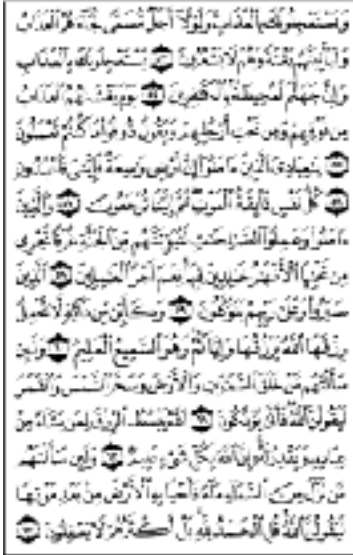 وَيَسْتَعْجِلُونَكَ بِالْعَذَابِ وَلَوْلَا أَجَلٌ مُّسَمًّى لَّجَاءَهُمُ الْعَذَابُ
وَلَيَأْتِيَنَّهُم بَغْتَةً وَهُمْ لَا يَشْعُرُونَ ۝ يَسْتَعْجِلُونَكَ بِالْعَذَابِ
وَإِنَّ جَهَنَّمَ لَمُحِيطَةٌ بِالْكَافِرِينَ ۝ يَوْمَ يَغْشَاهُمُ الْعَذَابُ
مِن فَوْقِهِمْ وَمِن تَحْتِ أَرْجُلِهِمْ وَيَقُولُ ذُوقُوا مَا كُنتُمْ تَعْمَلُونَ
۝ يَاعِبَادِيَ الَّذِينَ آمَنُوا إِنَّ أَرْضِي وَاسِعَةٌ فَإِيَّايَ فَاعْبُدُونِ
۝ كُلُّ نَفْسٍ ذَائِقَةُ الْمَوْتِ ثُمَّ إِلَيْنَا تُرْجَعُونَ ۝ وَالَّذِينَ
آمَنُوا وَعَمِلُوا الصَّالِحَاتِ لَنُبَوِّئَنَّهُم مِّنَ الْجَنَّةِ غُرَفًا تَجْرِي
مِن تَحْتِهَا الْأَنْهَارُ خَالِدِينَ فِيهَا نِعْمَ أَجْرُ الْعَامِلِينَ ۝ الَّذِينَ
صَبَرُوا وَعَلَىٰ رَبِّهِمْ يَتَوَكَّلُونَ ۝ وَكَأَيِّن مِّن دَابَّةٍ لَّا تَحْمِلُ
رِزْقَهَا اللَّهُ يَرْزُقُهَا وَإِيَّاكُمْ وَهُوَ السَّمِيعُ الْعَلِيمُ ۝ وَلَئِن
سَأَلْتَهُم مَّنْ خَلَقَ السَّمَاوَاتِ وَالْأَرْضَ وَسَخَّرَ الشَّمْسَ وَالْقَمَرَ
لَيَقُولُنَّ اللَّهُ فَأَنَّىٰ يُؤْفَكُونَ ۝ اللَّهُ يَبْسُطُ الرِّزْقَ لِمَن يَشَاءُ مِنْ
عِبَادِهِ وَيَقْدِرُ لَهُ إِنَّ اللَّهَ بِكُلِّ شَيْءٍ عَلِيمٌ ۝ وَلَئِن سَأَلْتَهُم
مَّن نَّزَّلَ مِنَ السَّمَاءِ مَاءً فَأَحْيَا بِهِ الْأَرْضَ مِن بَعْدِ مَوْتِهَا
لَيَقُولُنَّ اللَّهُ قُلِ الْحَمْدُ لِلَّهِ بَلْ أَكْثَرُهُمْ لَا يَعْقِلُونَ ۝